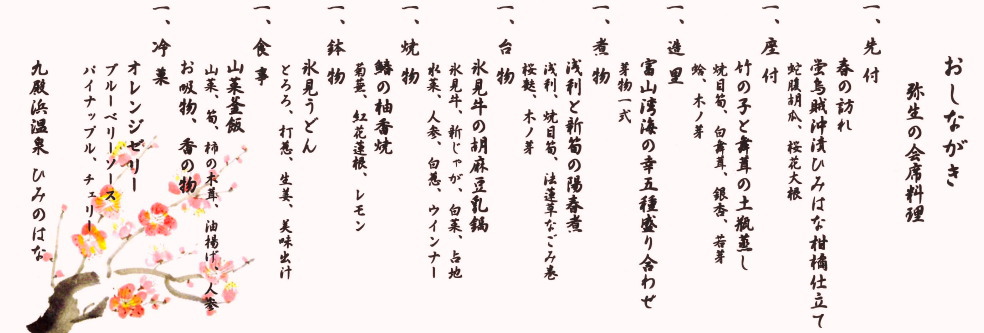 おしながき
弥生の会席料理
一、先付
春の訪れ
蛍烏賊沖漬ひみはな柑橘仕立て
蛇腹胡瓜、桜花大根
一、座付
竹の子と舞茸の土瓶蒸し
焼目筍、白舞茸、銀杏、若芽
蛤、木ノ芽
一、造里
富山湾海の幸五種盛り合わせ
芽物一式
一、煮物
浅利と新筍の陽春煮
浅利、焼目筍、法蓮草なごみ巻
桜麩、木ノ芽
一、台物
氷見牛の胡麻豆乳鍋
氷見牛、新じゃが、白菜、占地
水菜、人参、白葱、ウインナー
一、焼物
鰆の柚香焼
菊蕪、紅花蓮根、レモン
一、鉢物
氷見うどん
とろろ、打葱、生姜、美味出汁
一、食事
山菜釜飯
山菜、筍、柿の木茸、油揚げ、人参
お吸物、香の物
一、冷菓
オレンジゼリー
ブルーベリーソース
パイナップル、チェリー
九殿浜温泉　ひみのはな